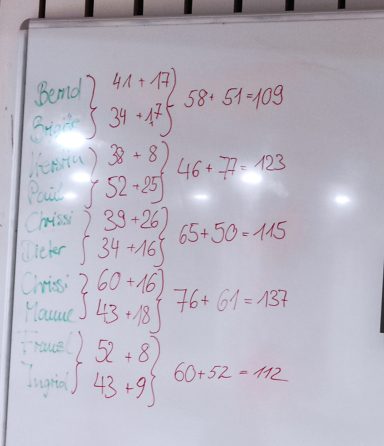 Bernd } 41 + 17 } 58 + 51 = 109
Brigitte } 34 + 17 }
Kerstin } 38 + 8 } 46 + 77 = 123
Paul } 52 + 25 }
Chrissi } 39 + 26 } 65 + 50 = 115
Dieter } 34 + 16 }
Chrissi } 60 + 16 } 76 + 61 = 137
Manne } 43 + 18 }
Franz } 52 + 8 } 60 + 52 = 112
Ingrid } 43 + 9 }